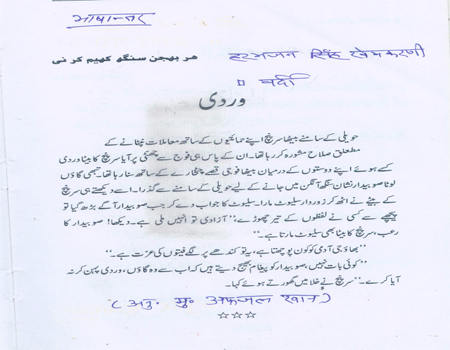 भाषान्तर
ہر بھجن سنگھ کھیم کرنی
हरभजन सिंह खेमकरणी
□ वर्दी
وردی
حویلی کے سامنے بیٹھا سرپنچ اپنے حمائتیوں کے ساتھ معاملات نپٹانے کے
متعلق صلاح مشورہ کر رہا تھا۔ ان کے پاس ہی فوج سے چھٹی پر آیا سرپنچ کا بیٹا وردی
کسے ہوئے اپنے دوستوں کے درمیان بیٹھا فوجی قصے چٹخارے کے ساتھ سنا رہا تھا۔ تبھی گاؤں
لوٹا صوبیدار نشان سنگھ آنگن میں جانے کے لیے حویلی کے سامنے سے گذرا۔ اسے دیکھتے ہی سرپنچ
کے بیٹے نے اٹھ کر زوردار سلیوٹ مارا۔ سلیوٹ کا جواب دے کر جب صوبیدار آگے بڑھ گیا تو
پیچھے سے کسی نے لفظوں کے تیر چھوڑے، ''آزادی تو انہیں ملی ہے۔ دیکھا! صوبیدار کا
رعب، سرپنچ کا بیٹا بھی سلیوٹ مارتا ہے۔''
''بھاؤ جی آدمی کو کون پوچھتا ہے، یہ تو کندھے پر لگے فیتوں کی عزت ہے۔''
''کوئی بات نہیں، صوبیدار کو پیغام بھیج دیتے ہیں کہ اب سے وہ گاؤں، وردی پہن کر نہ
آیا کرے۔'' سرپنچ نے خلا میں گھورتے ہوئے کہا۔
(अनु. मु. अफजल खान)
☆☆☆